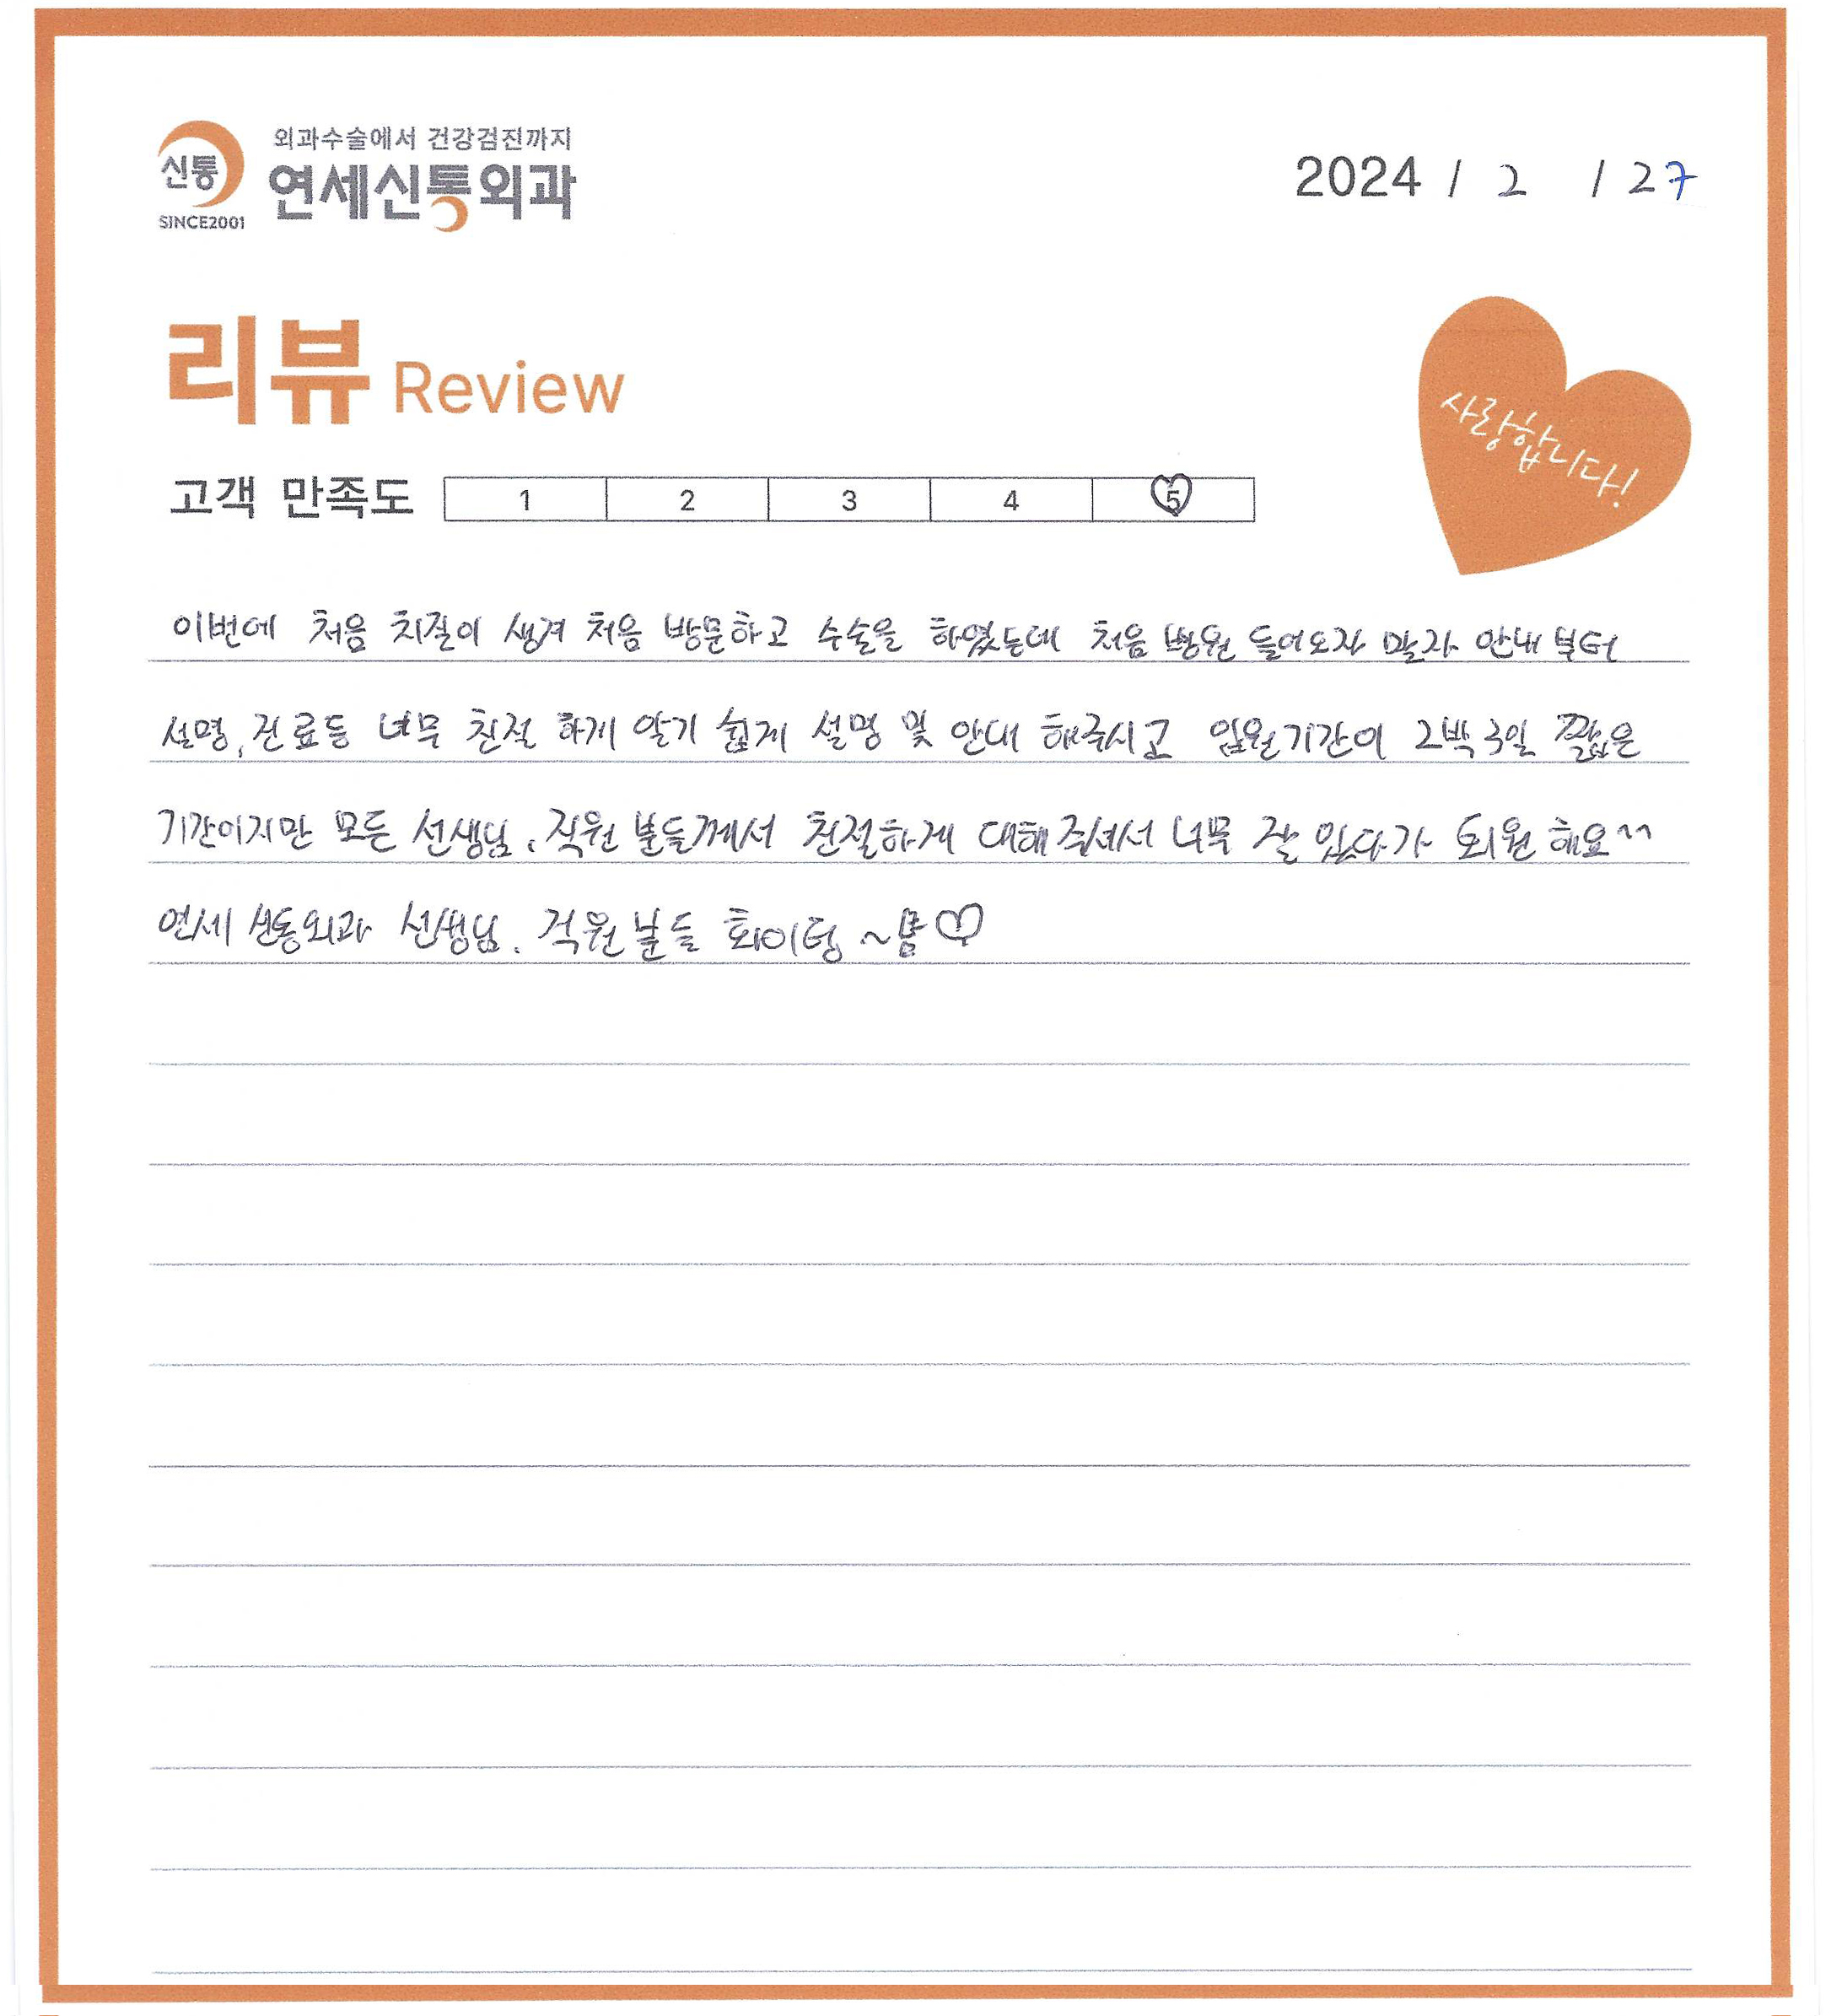 외과수술에서 건강검진까지
신통 연세신통외과
SINCE2001
2024 / 2 / 27
리뷰 Review
사랑합니다!
고객 만족도 1 2 3 4 5
이번에 처음 치질이 생겨 처음 방문하고 수술을 하였는데 처음 병원 들어오자 말자 안내 부터
설명, 진료등 너무 친절 하게 알기 쉽게 설명 및 안내 해주시고 입원기간이 2박 3일 짧은
기간이지만 모든 선생님, 직원 분들께서 친절하게 대해 주셔서 너무 잘 있다가 퇴원 해요^^
연세 신통외과 선생님, 직원 분들 화이팅 ~!! ♡